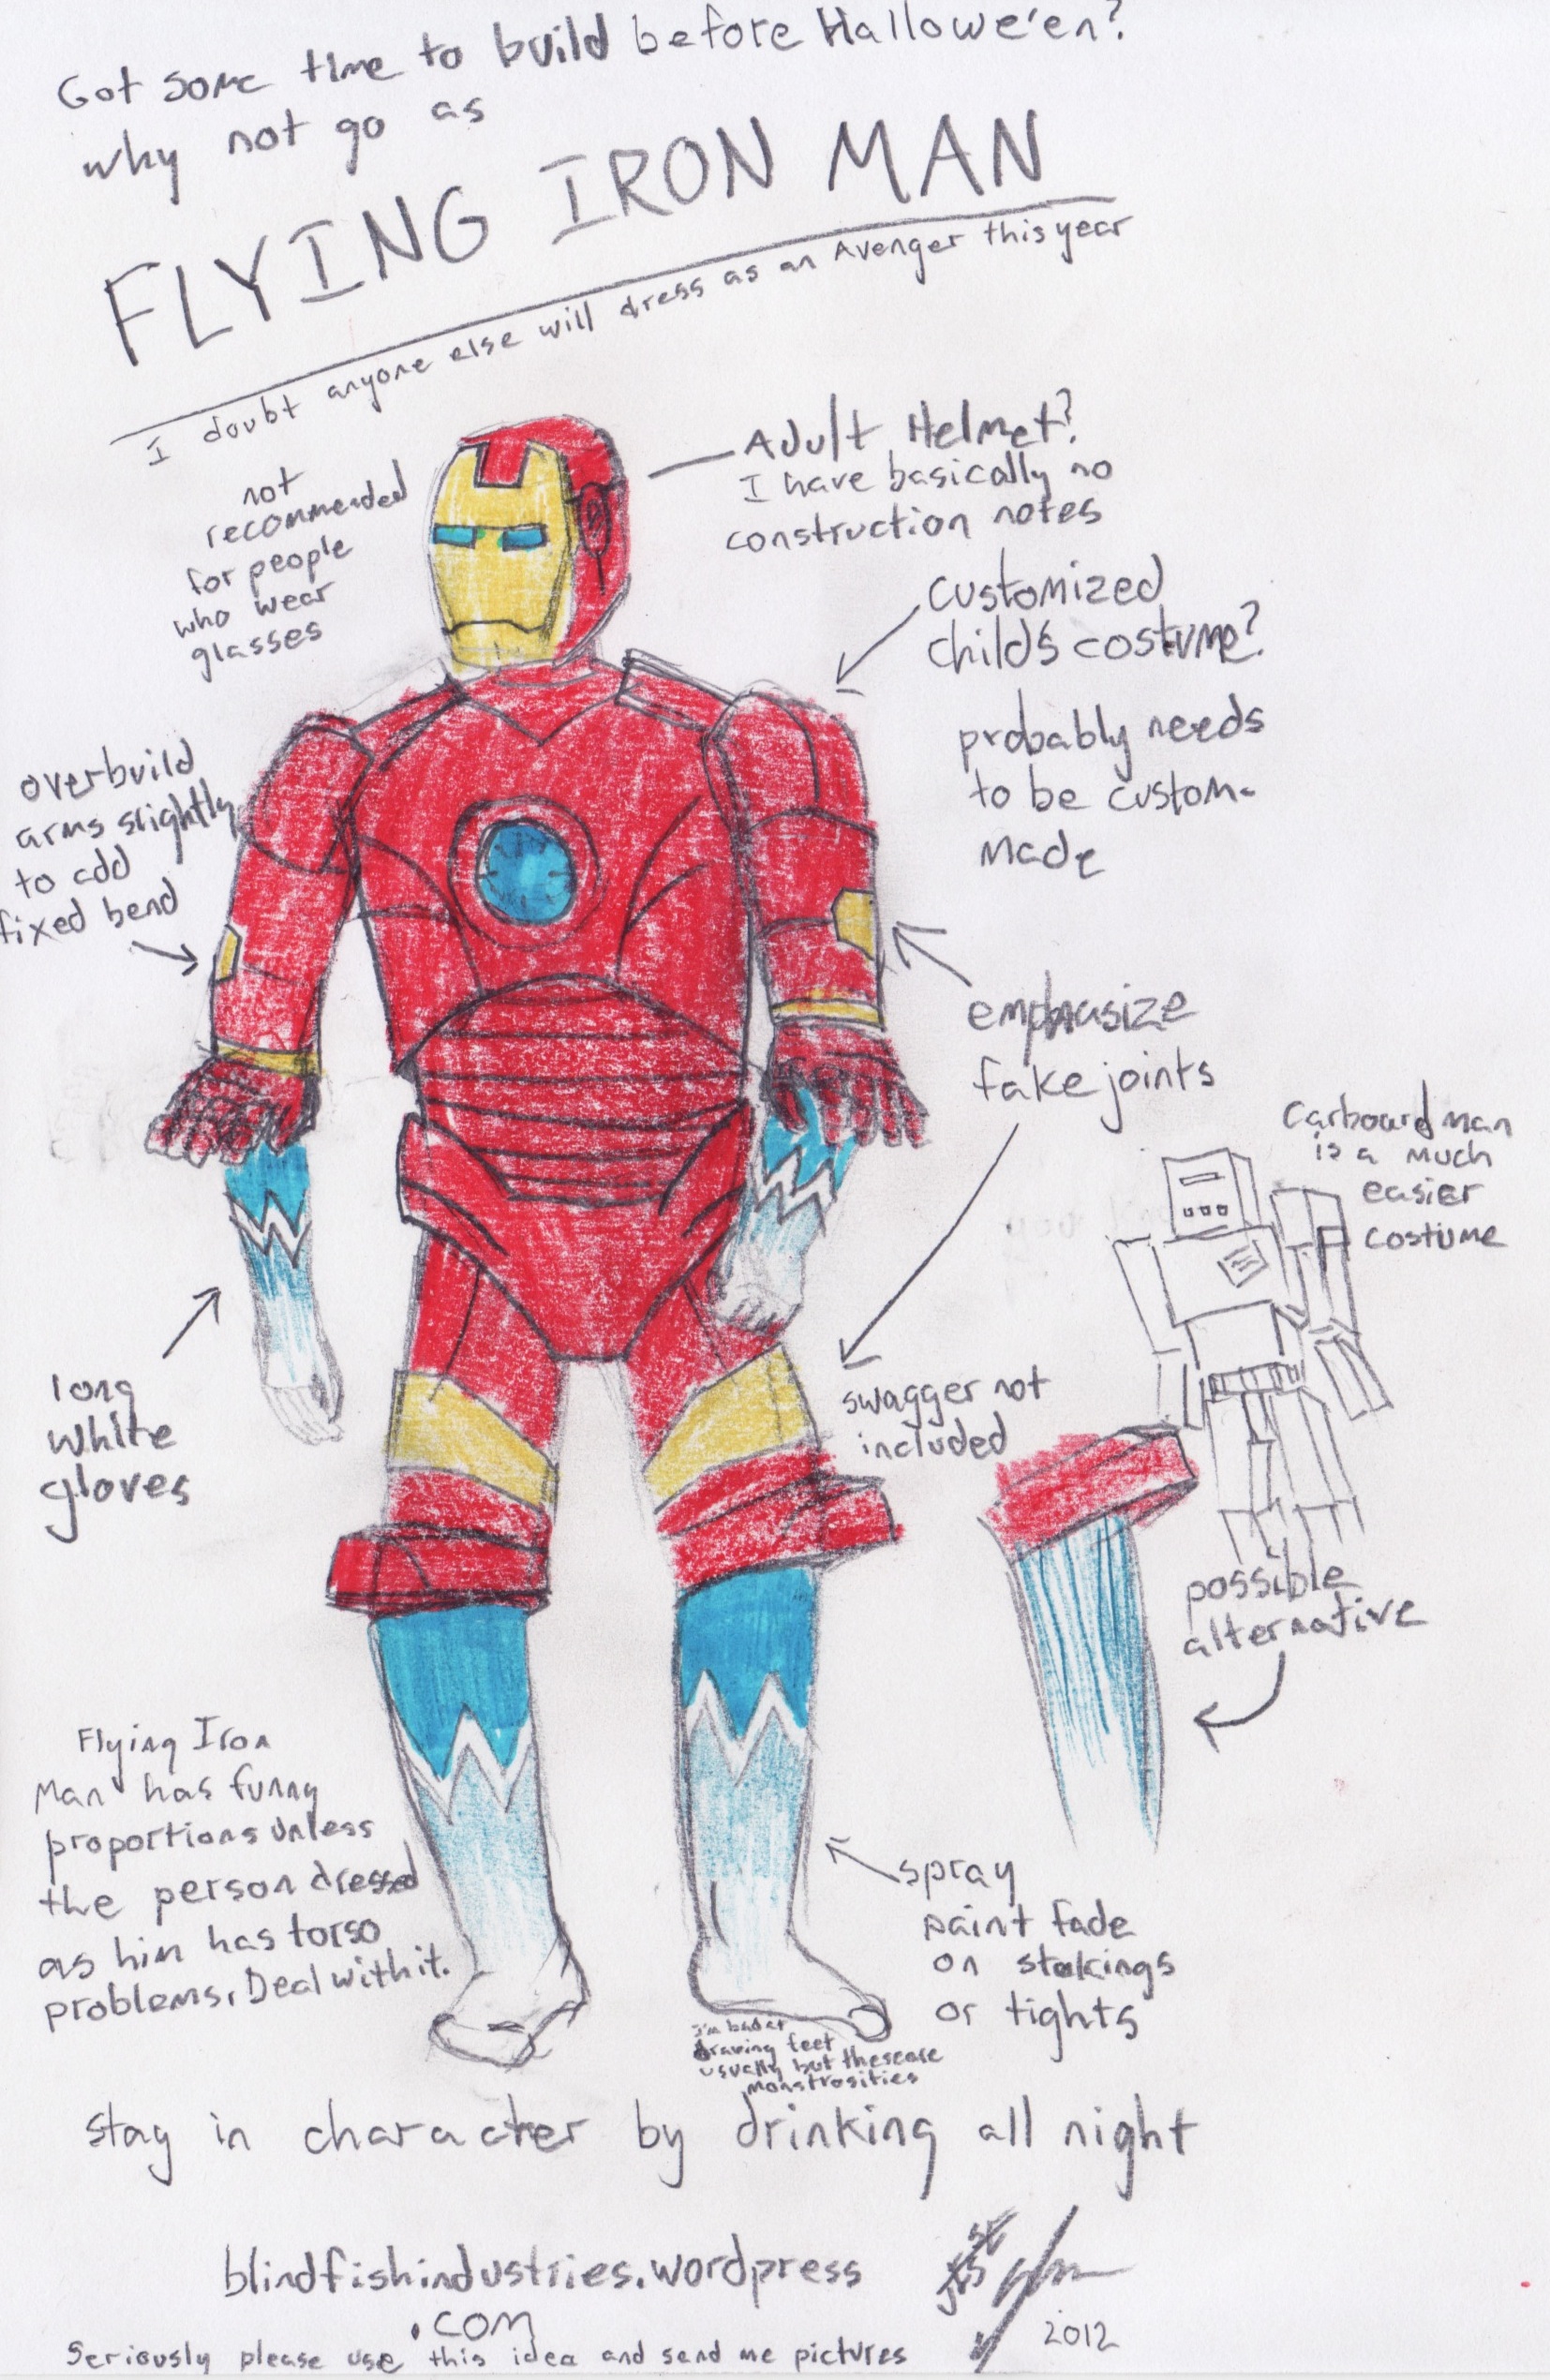 Got some time to build before Hallowe'en?
why not go as
FLYING IRON MAN
I doubt anyone else will dress as an Avenger this year
not
recommended
for people
who wear
glasses
Adult Helmet?
I have basically no
construction notes
customized
child's costume?
probably needs
to be custom-
made
overbuild
arms slightly
to add
fixed bend
emphasize
fake joints
Carboard man
is a much
easier
costume
long
white
gloves
swagger not
included
possible
alternative
Flying Iron
Man has funny
proportions unless
the person dressed
as him has torso
problems. Deal with it.
spray
paint fade
on stockings
or tights
I'm bad at
drawing feet
usually but these are
monstrosities
stay in character by drinking all night
blindfishindustries.wordpress
.com
2012
Seriously please use this idea and send me pictures